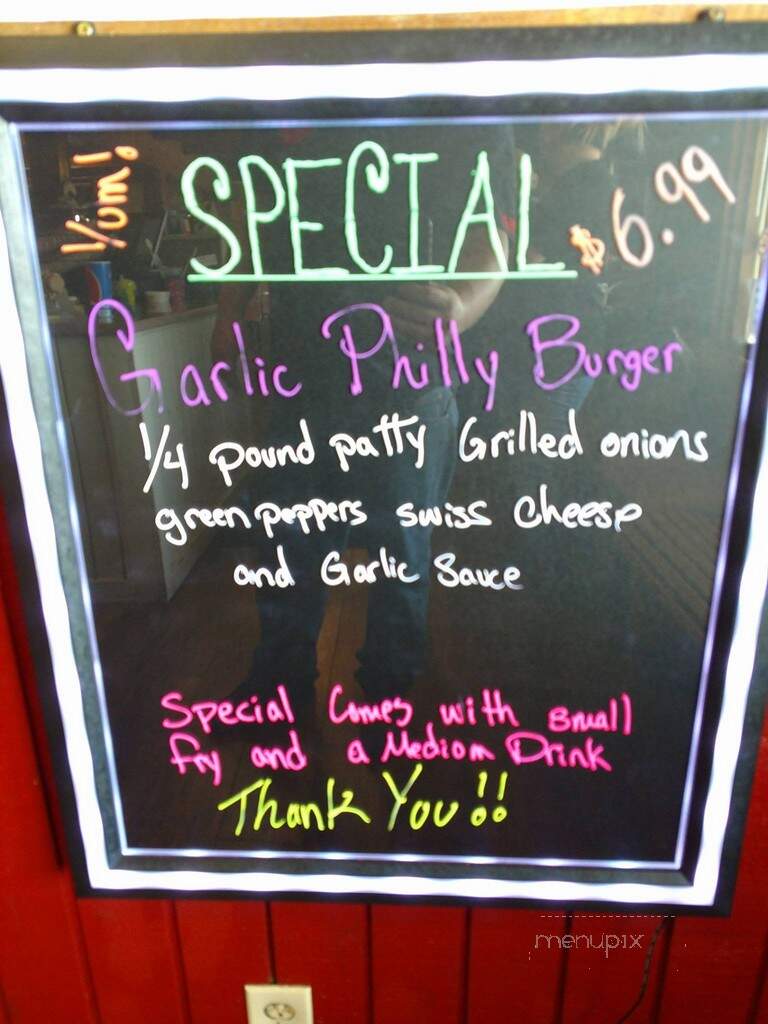 Yum!
SPECIAL
$6.99
Garlic Philly Burger
1/4 pound patty Grilled onions
green peppers swiss Cheese
and Garlic Sauce
Special Comes with small
fry and a Mediom Drink
Thank You!!
menupix